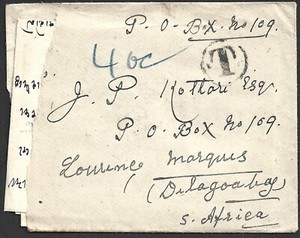 P. O. Box. No 109.
40c
T
J. P. Kothari Esq.
P. O Box No 109.
Lourence Marques
(Delagoabay)
S. Africa